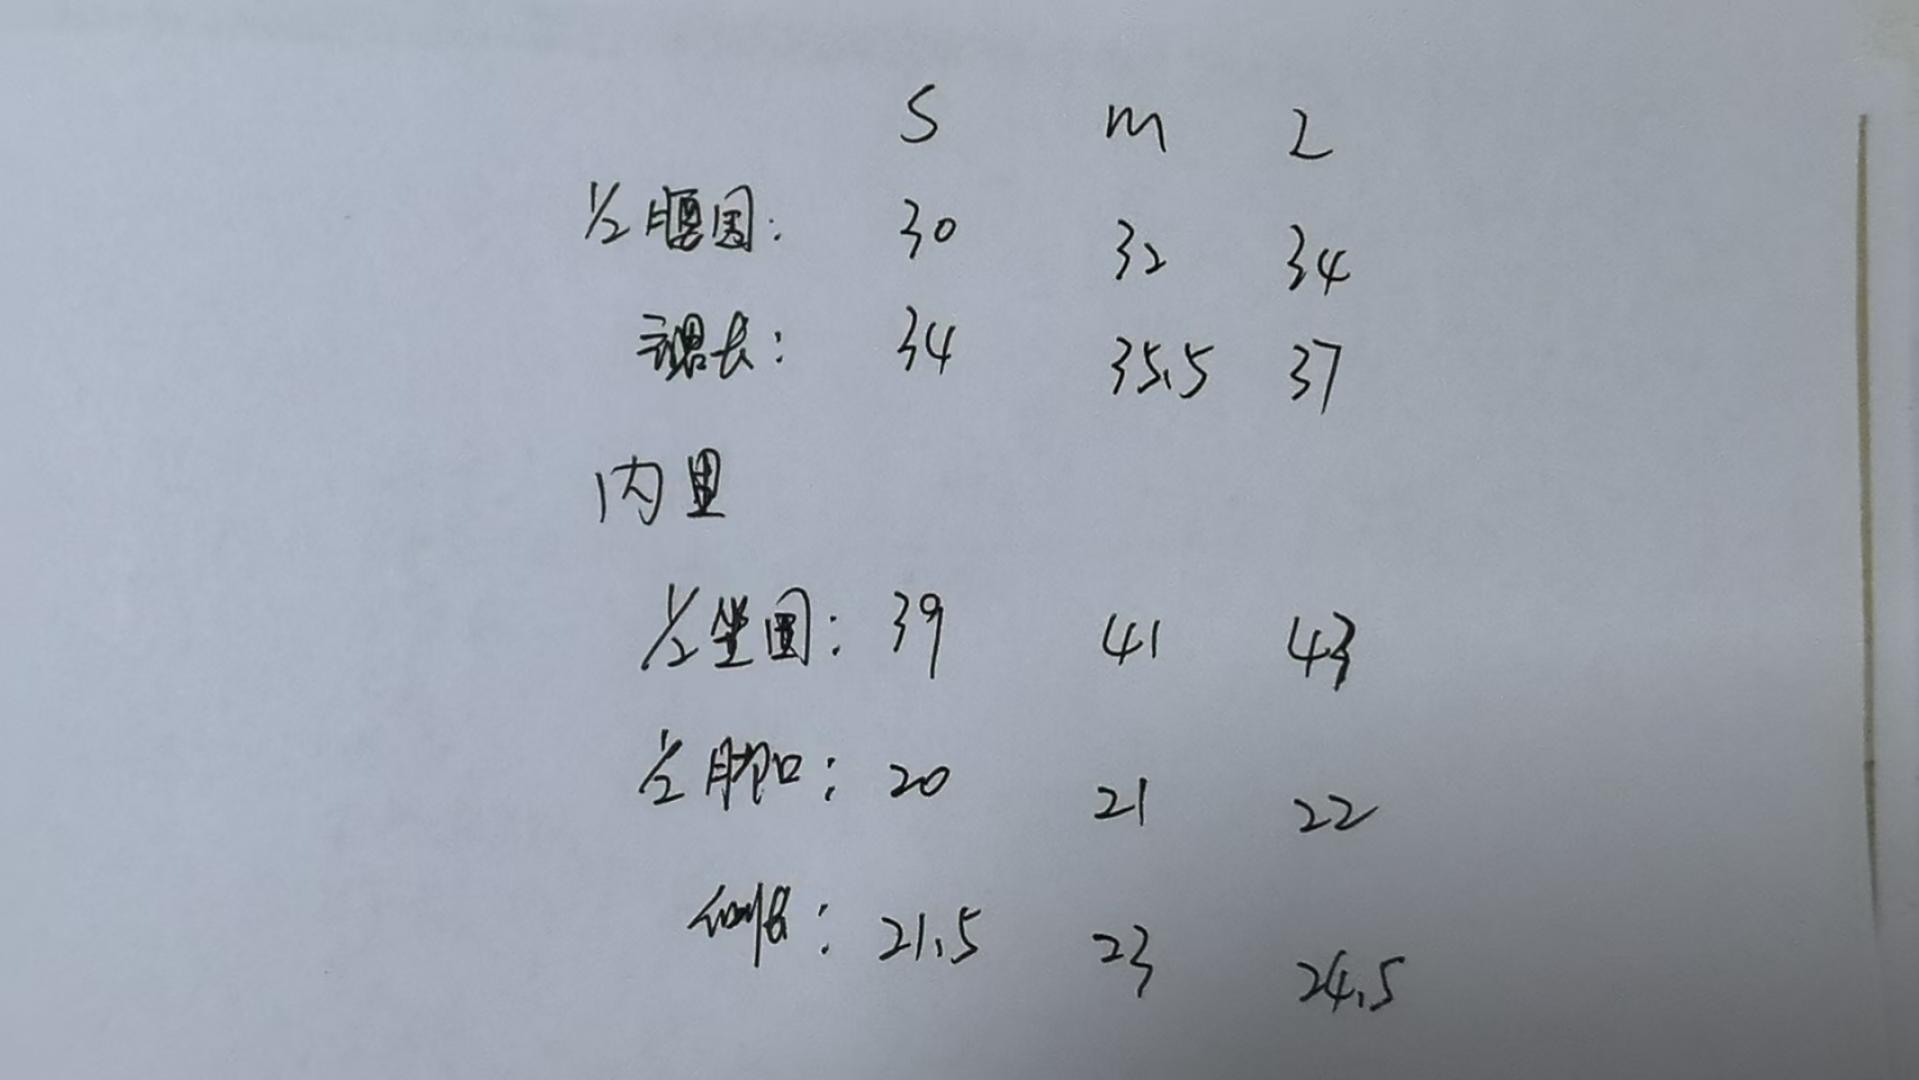 S m L
1/2腰围: 30 32 34
裙长: 34 35.5 37
内里
1/2坐围: 39 41 43
1/2脚口: 20 21 22
侧长: 21.5 23 24.5